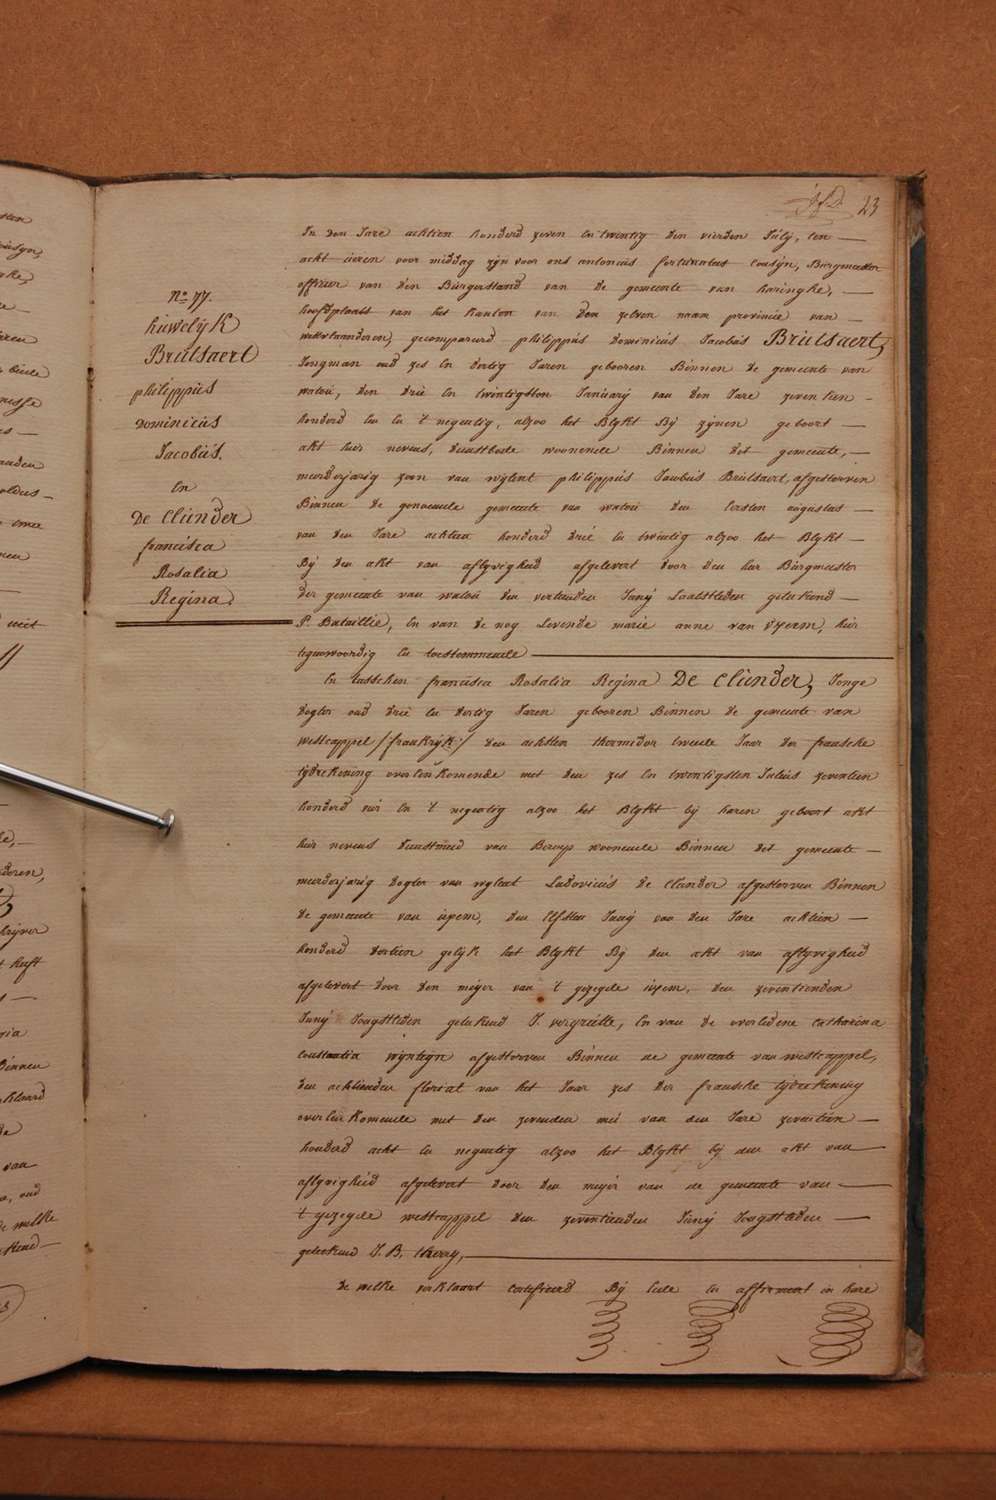 23
N.o 77.
huwelyk
Brutsaert
philippus
dominicus
Jacobus.
En
De Clunder
francisca
Rosalia
Regina.
In den Jare achtien honderd zeven En twentig den vierden July, ten
acht ueren voor middag zyn voor ons antonius fortunatus cousyn, Burgmeester
officier van den Burgerstand van de gemeente van haringhe,
hoofdplaats van het kanton van den zelven naam provincie van
westvlaanderen, gecompareerd philippus dominicus Jacobus Brutsaert,
Jongman oud zes En dertig Jaren gebooren Binnen de gemeente van
watou, den drie En twintigsten January van den Jare zeventien
honderd En En 't negentig, alzoo het Blykt By zynen geboort
akt hier nevens, dienstbode woonende Binnen det gemeente,
meerderjarig zoon van wylent philippus Jacobus Brutsaert, afgestorven
Binnen de genoemde gemeente van watou den Eersten augustus
van den Jare achtien honderd drie En twintig alzoo het Blykt
By den akt van aflyvigheid afgelevert door den heer Burgmeester
der gemeente van watou den veertienden Juny Laatstleden geteekend
P. Bataillie, En van de nog Levende marie anne van Yperm, hier
tegenwoordig En toestemmende
En tusschen francisca Rosalia Regina De Clunder, Jonge
dogter oud drie En dertig Jaren gebooren Binnen de gemeente van
westcappel /frankryk/ den achsten thermidor tweede Jaar der fransche
tydrekening overeenkomende met den zes En twentigsten Julius zeventien
honderd vier En 't negentig alzoo het Blykt by haren geboort akt
hier nevens dienstmeid van Beroep woonende Binnen det gemeente
meerderjarig dogter van wylent Ludovicus De Clunder afgestorven Binnen
de gemeente van ixem, den Elfsten Juny van den Jare achtien
honderd dertien gelyk het Blykt By den akt van aflyvigheid
afgelevert door den meyer van 't gezegde ixem, den zeventienden
Juny Jongstleden geteekend J. vergriette, En van de overledene catharina
constantia wynteyn afgestorven Binnen de gemeente van westcappel,
den achtienden florial van het Jaar zes der fransche tydrekening
overeenkomende met den zevenden mei van den Jare zeventien
honderd acht En negentig alzoo het Blykt by den akt van
aflyvigheid afgelevert door den meyer van de gemeente van
't gezegde westcappel den zeventienden Juny Jongstleden
geteekend J. B. therry,
de welke verklaart certifieerd By Eede En affirmeert in hare